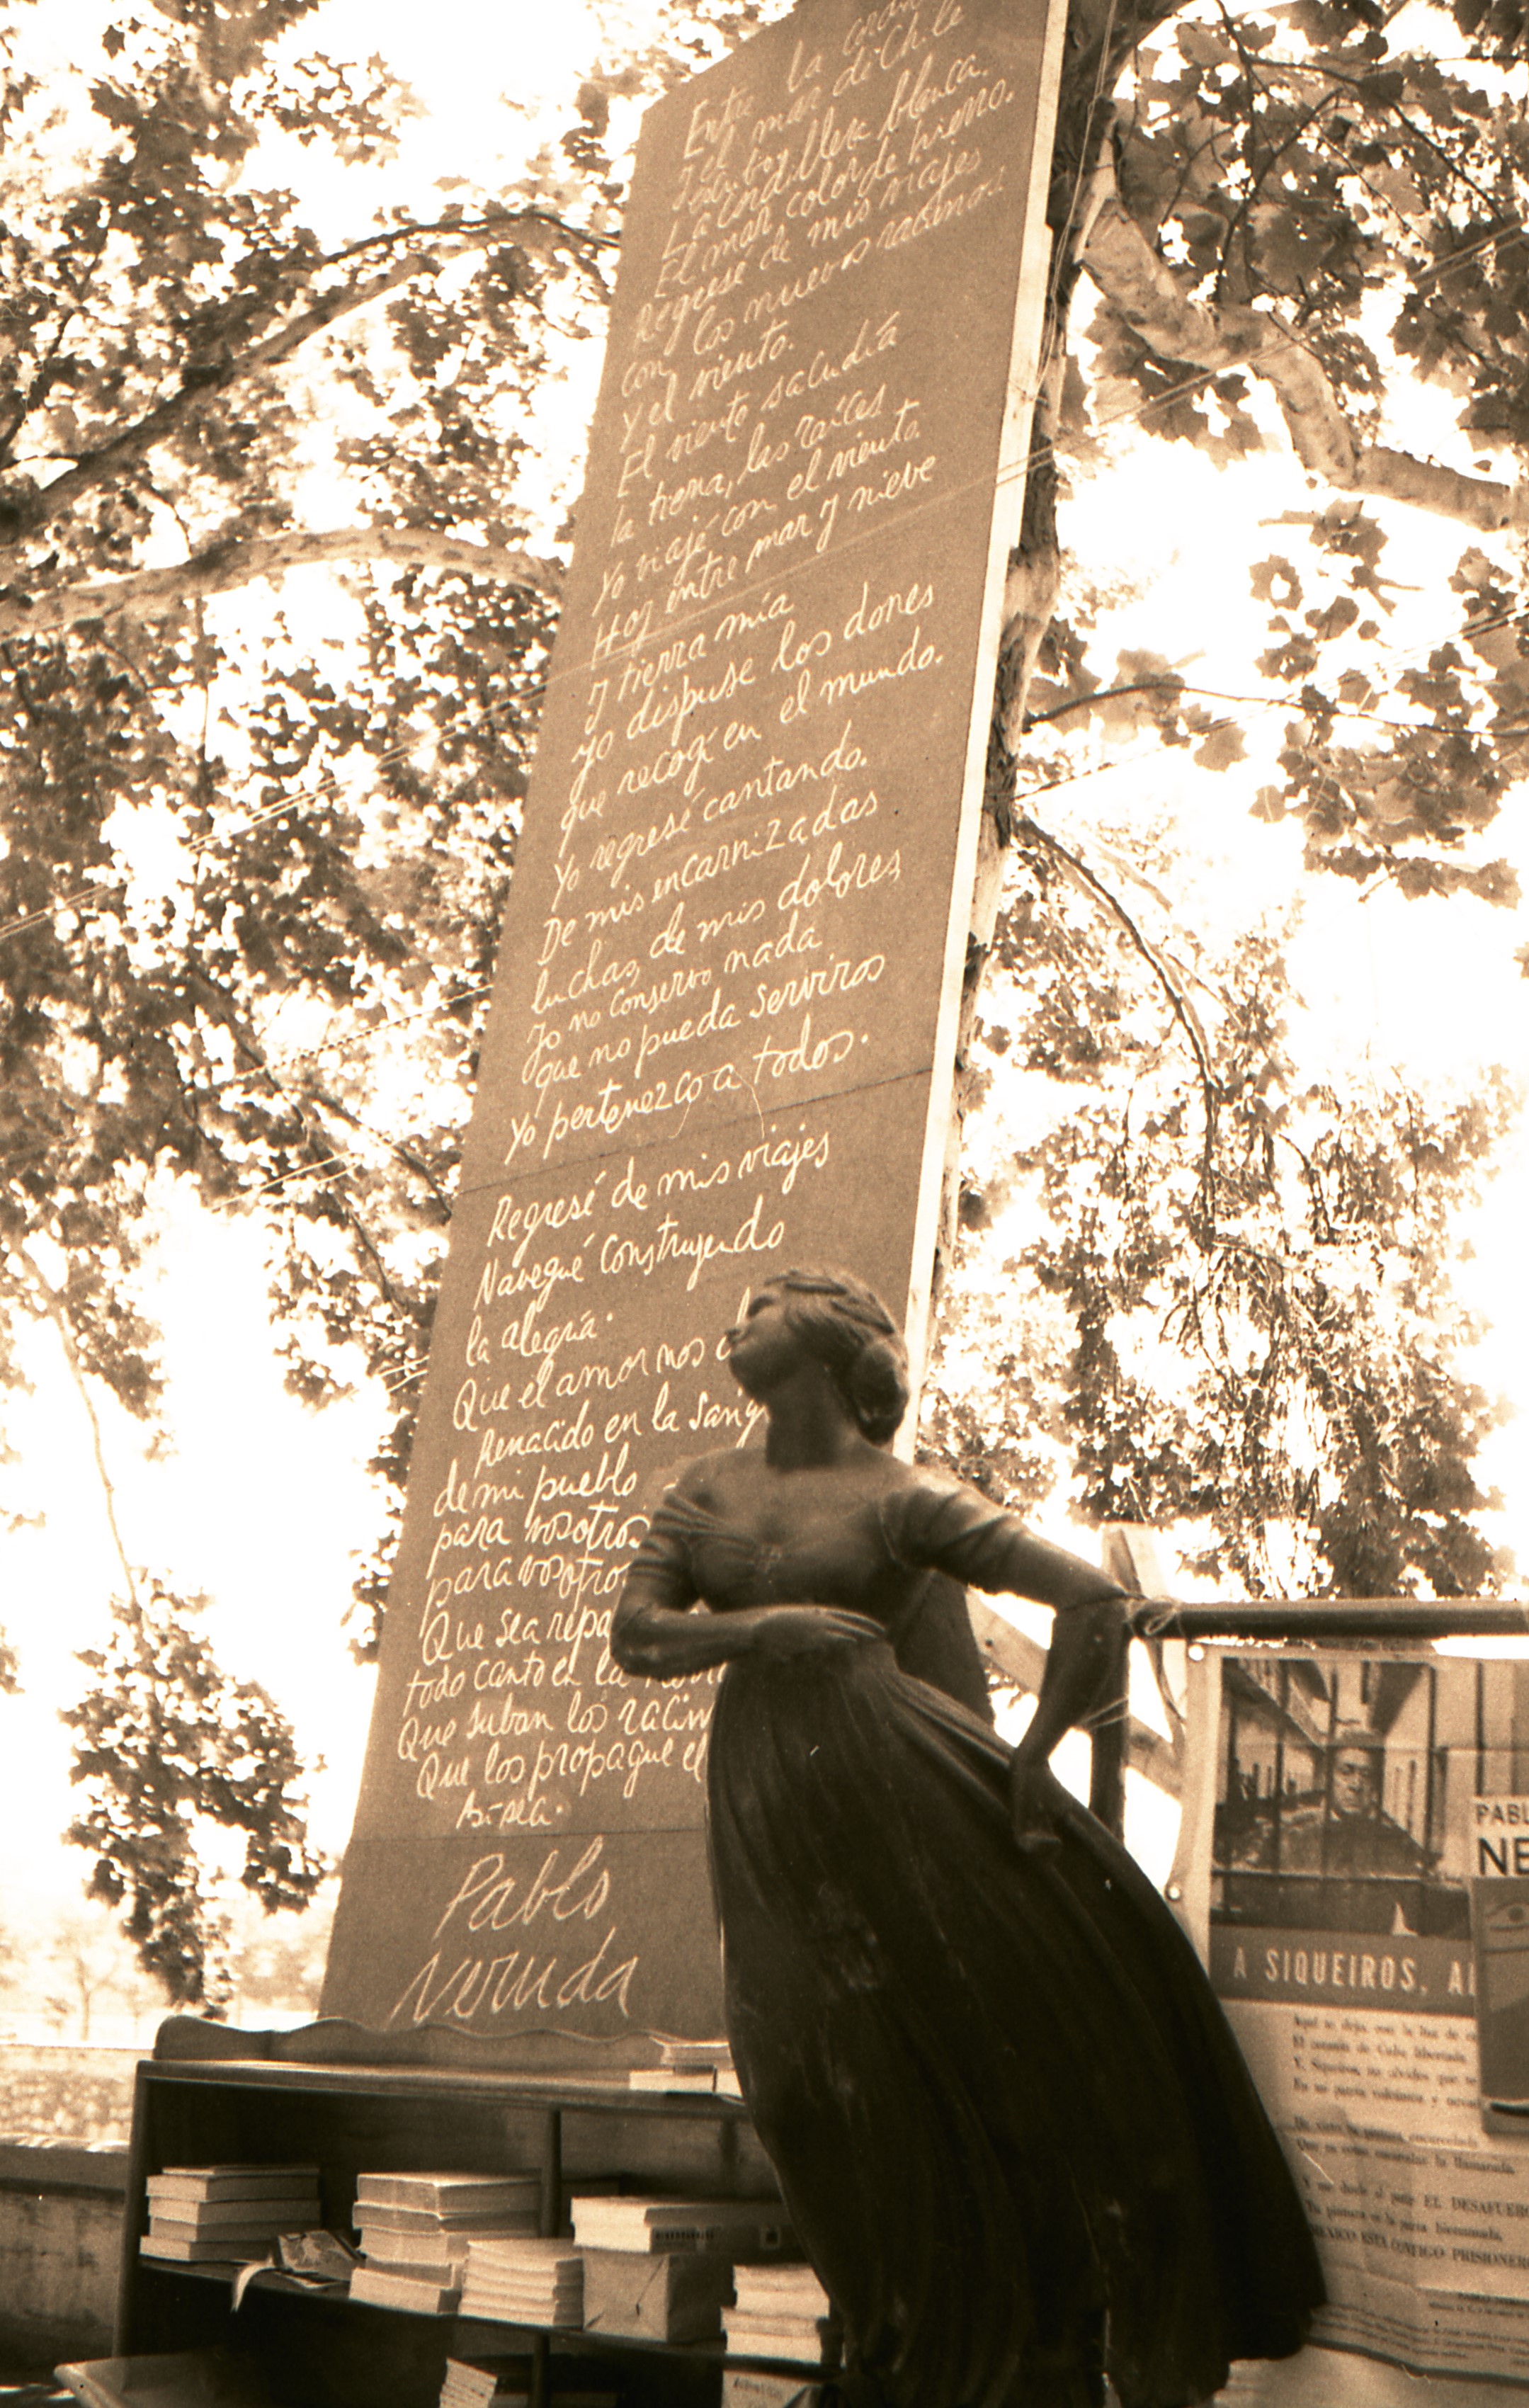 Entre La gran
y el mar de Chile
La cordillera blanca.
El mar color de hierro.
Regresé de mis viajes
con los nuevos racimos
y el viento.
El viento saludiá
la tierra, las raíces
Yo viajé con el viento.
Hoy entre mar y nieve
y tierra mía
yo dispuse los dones
que recogí en el mundo.
Yo regresé cantando.
De mis encarnizadas
luchas, de mis dolores
yo no conservo nada
que no pueda serviros
Yo pertenezco a todos.
Regresé de mis viajes
Navegué construyendo
la alegría.
Que el amor nos
Renacido en la sang
de mi pueblo
para vosotros
para vosotros
Que sea repa
todo canto en la
Que suban los racim
Que los propague el
Así sea.
Pablo
Neruda
PABL
NE
A SIQUEIROS, AL
EL DESAFUERO
MEXICO ESTA CONTIGO PRISIONERO